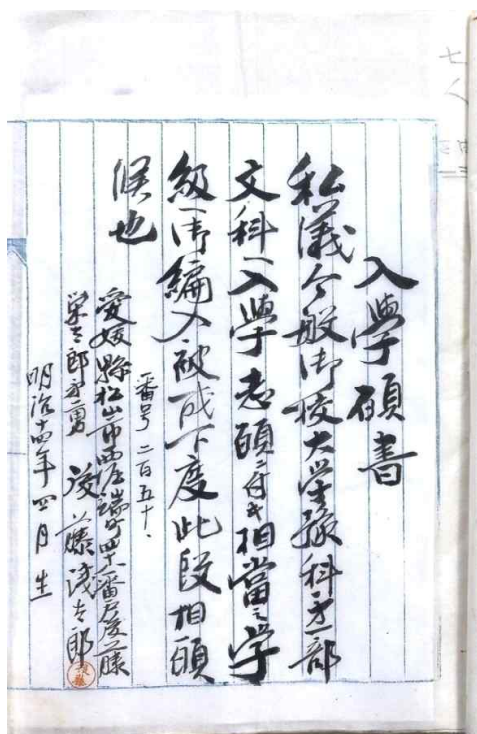 入學願書
私儀今般御校大学豫科第一部
文科ヘ入學志願ニ付キ相當之学
級ヘ御編入被成下度此段相願
候也
番号二百五十、
愛媛縣松山市西堀端町四十八番戸後藤
栄太郎二男 後藤浅太郎
明治十四年四月生